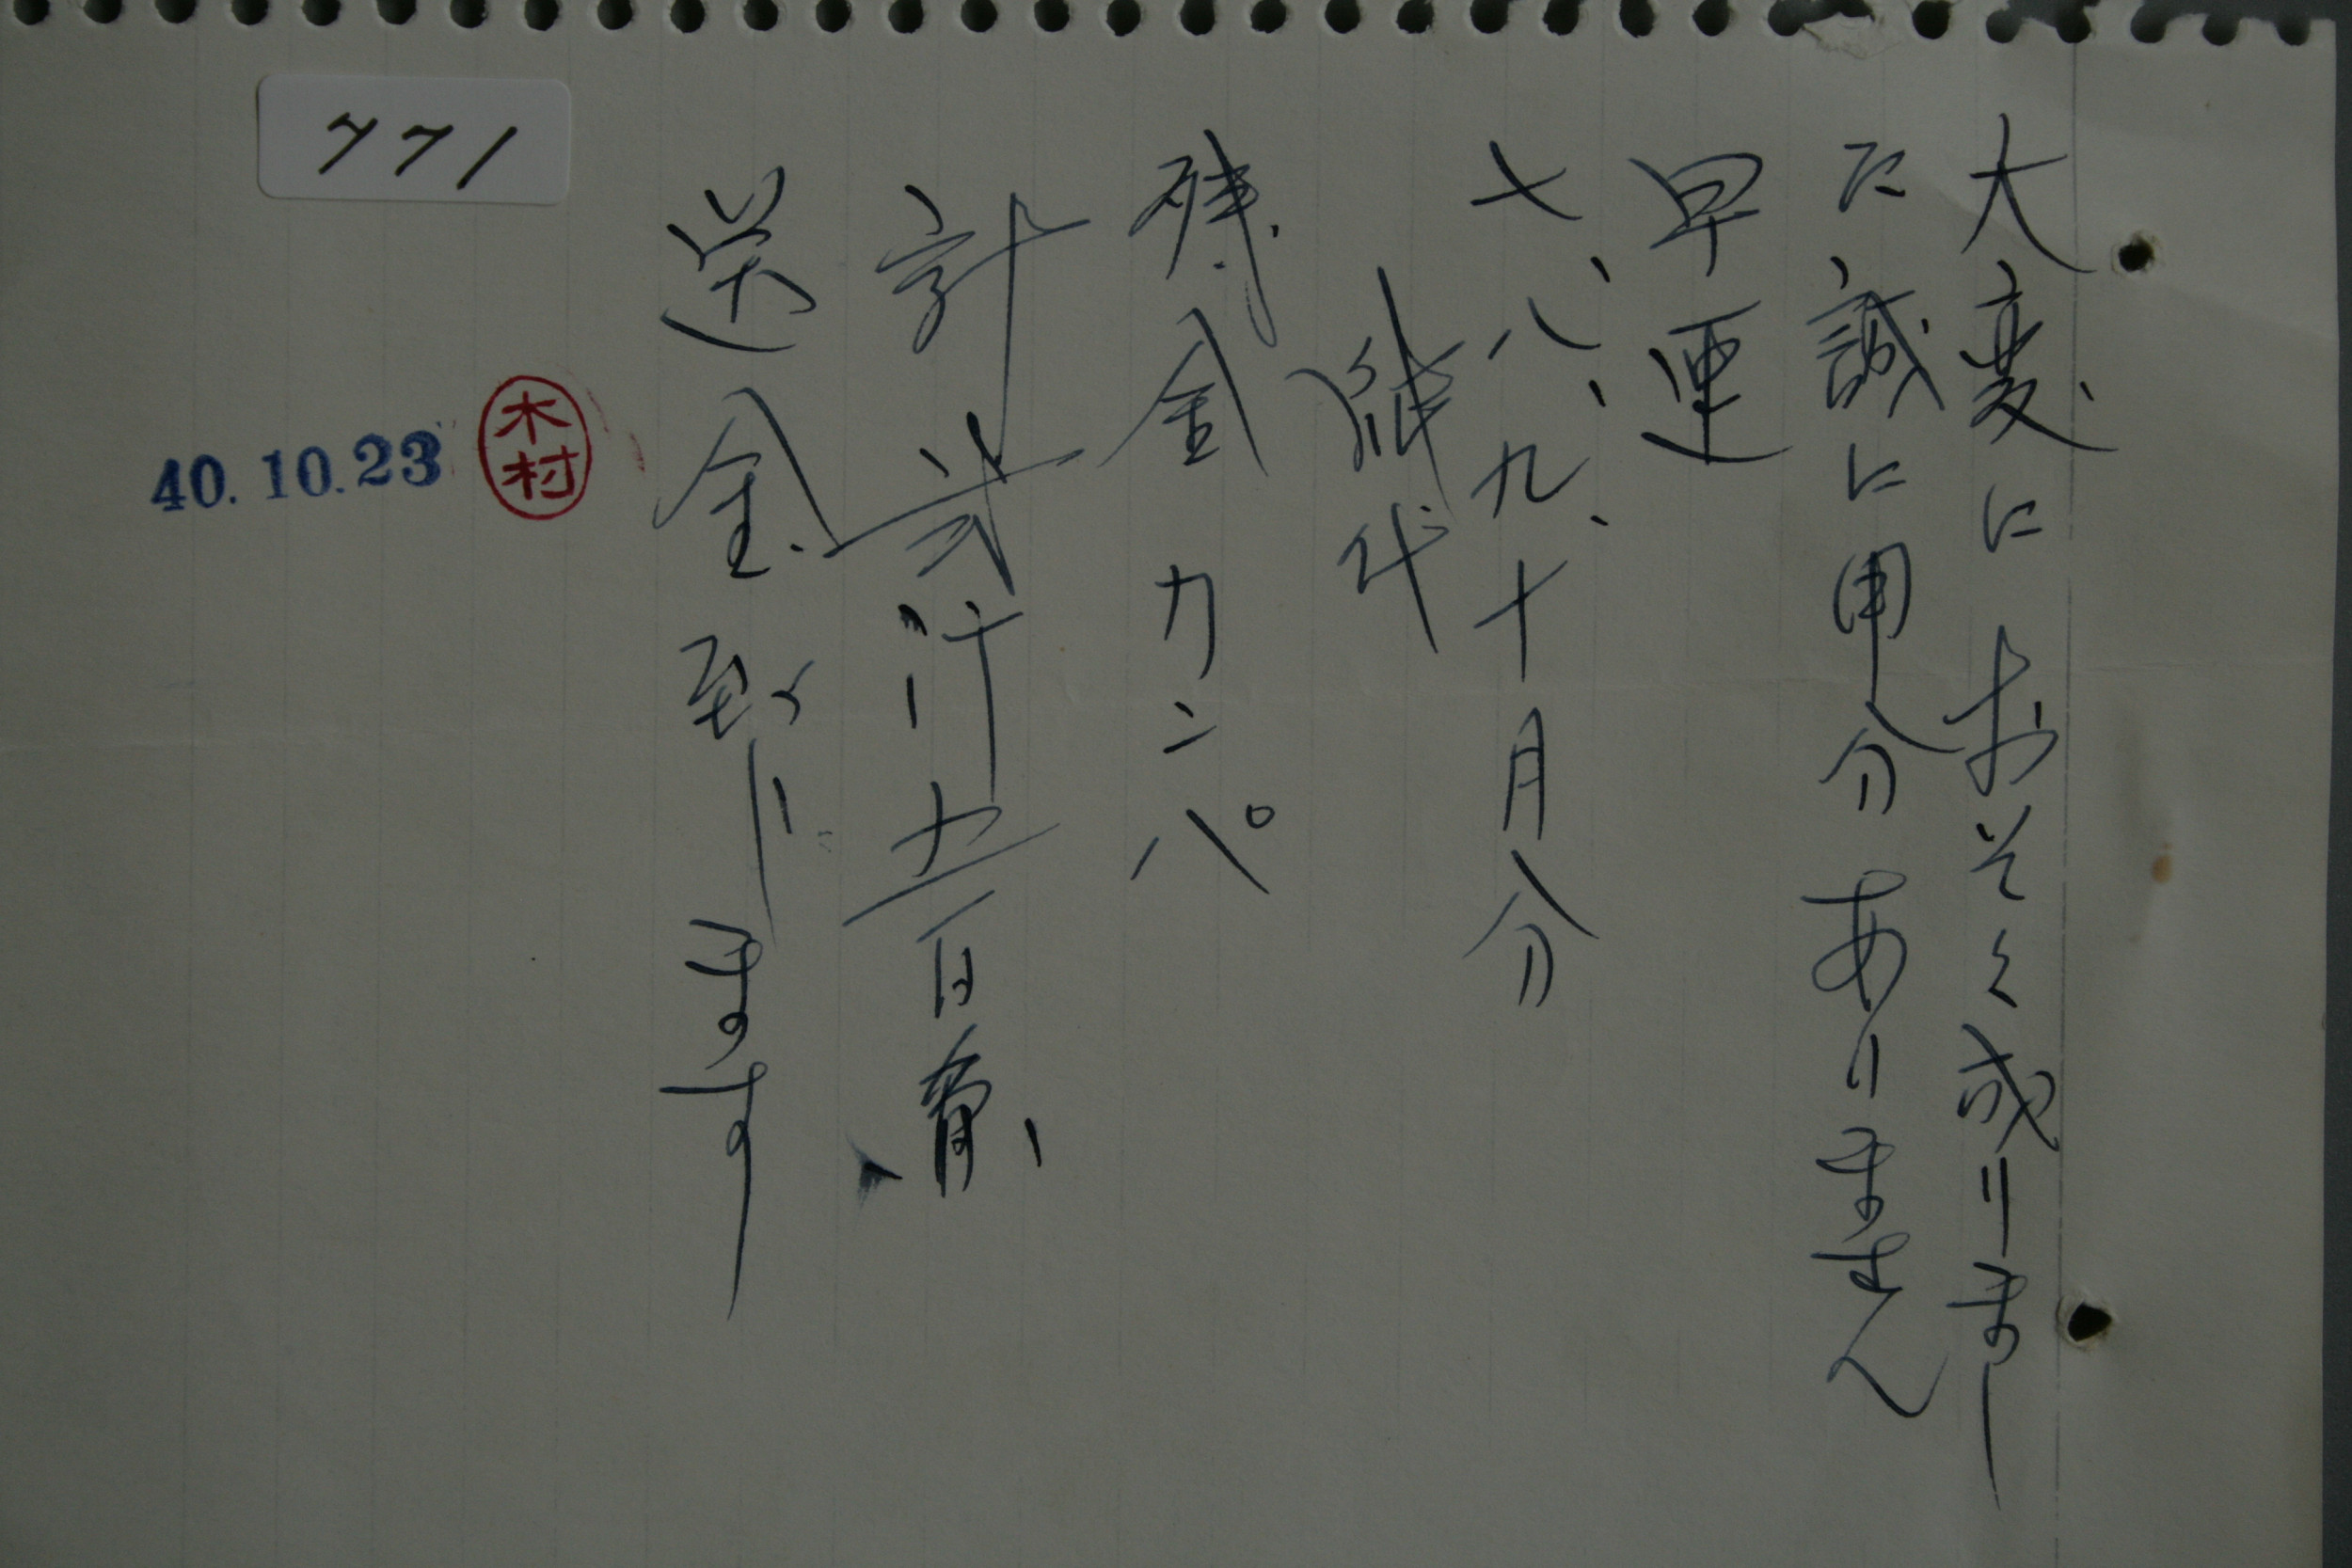 大変におそく成りまし
た誠に申分ありません
早速
七、八、九、十月分
紙代
残金カンパ
計弐仟五百円
送金致します
木村
40.10.23
771